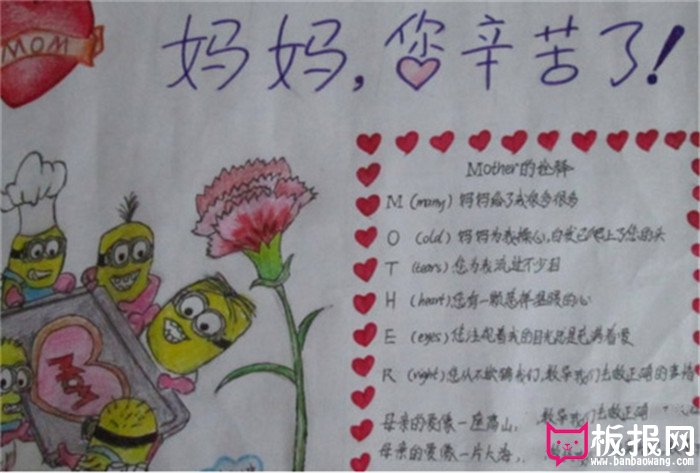 MOM
妈妈,您辛苦了!
Mother的诠释
M (many) 妈妈给了我很多很多
O (old) 妈妈为我操心,白发已爬上了您的头
T (tears) 您为我流过不少泪
H (heart) 您有一颗慈祥温暖的心
E (eyes) 您注视着我的目光总是充满着爱
R (right) 您从不欺骗我们,教导我们去做正确的事情
MOM
母亲的爱像一座高山, 教导我们去做正确
母亲的爱像一片大海,
板报网
www.banbaowang.com